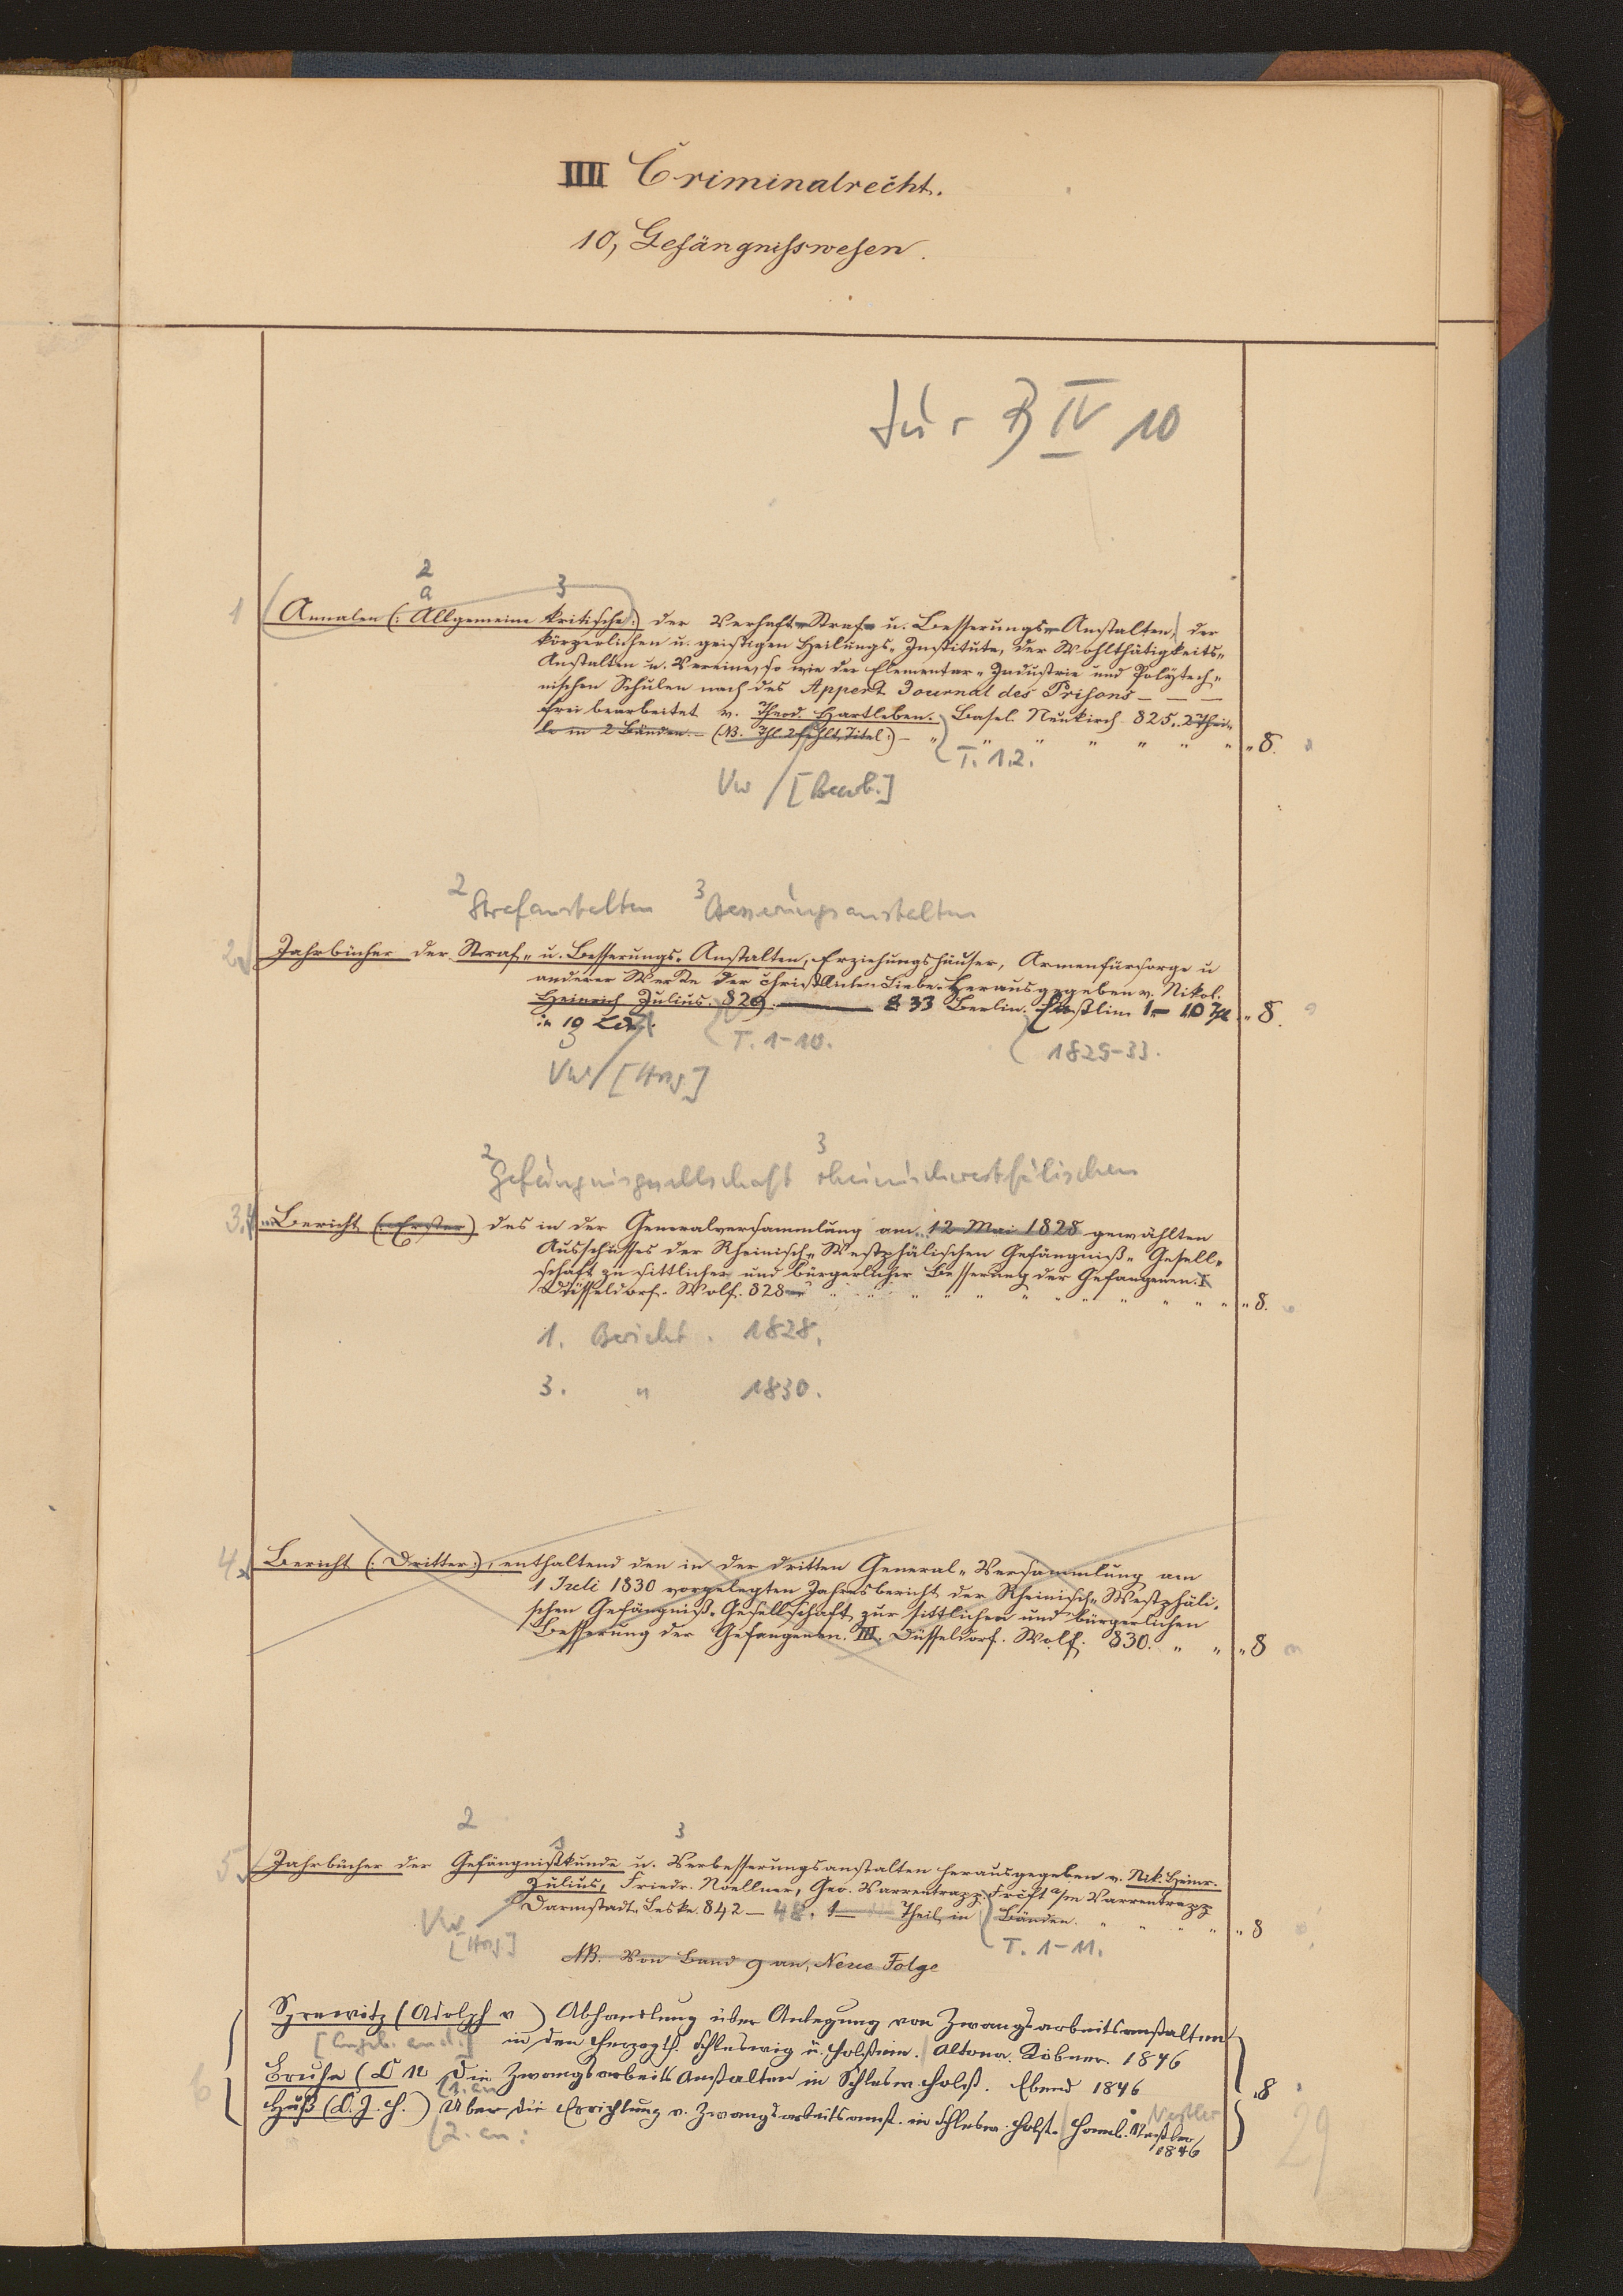 IIII Criminalrecht.
10, Gefängnisswesen.
Jur B IV 10
2
a 3
1 Annalen (: Allgemeine kritische :) der Verhaft- Straf- u. Besserungs-Anstalten, der
körperlichen u. geistigen Heilungs-Institute, der Wohlthätigkeits-
Anstalten u. Vereine, so wie der Elementar- Industrie und Polytech-
nischen Schulen nach des Appert Journal des Prisons — — —
frei bearbeitet v. Theod. Hartleben. Basel. Neukirch 825. 2 Thei-
le in 2 Bänden. — (NB. Thl. 2 fehlt, Titel:) — " " " " " " " " 8.
T. 1.2.
Vw [Bearb.]
2 Strafanstalten 3 Besserungsanstalten
2 Jahrbücher der Straf- u. Besserungs-Anstalten, Erziehungshäuser, Armenfürsorge u
anderer Werke der christlichen Liebe. Herausgegeben v. Nikol.
Heinrich Julius. 829. — 833 Berlin. Enslin. 1 — 10 " 8.
in 10
T. 1-10. 1829-33.
Vw [Hrsg]
2 Gefängnisgesellschaft 3 rheinischwestfälischen
3. Bericht (: Erster) des in der Generalversammlung am 12 Mai 1828 gewählten
Ausschusses der Rheinisch-Westphälischen Gefängniß-Gesell-
schaft zu sittlicher und bürgerlicher Besserung der Gefangenen. I
Düsseldorf. Wolf. 828 " " " " " " " " " " 8.
1. Bericht. 1828.
3. " 1830.
4. Bericht (: Dritter:), enthaltend den in der dritten General-Versammlung am
1 Juli 1830 vorgelegten Jahresbericht der Rheinisch-Westphäli-
schen Gefängniß-Gesellschaft zur sittlichen und bürgerlichen
Besserung der Gefangenen. III. Düsseldorf. Wolf. 830. " " " 8
2 3
5 Jahrbücher der Gefängnißkunde u. Verbesserungsanstalten herausgegeben v. Nik. Heinr.
Julius, Friedr. Noellner, Geo. Varrentrapp. Frkft a/m Varrentrapp
Darmstadt. Leske. 842 — 48. 1 — Theil, in Bänden. " " " " 8
Vw [Hrsg] T. 1-11.
NB. Von Band 9 an, Neue Folge
Sprewitz (Adolph v ) Abhandlung über Anlegung von Zwangsarbeitsanstalten
in den Herzogth. Schleswig u. Holstein. Altona. 1846
6 (D Die Zwangsarbeits Anstalten in Schlesw. Holst. Ebend 1846
8
1. an
(D. J. H.) Über die Errichtung v. Zwangsarbeitsanst. in Schlesw. Holst. Hamb. Nestler
1846
2. an:
Nestler
29